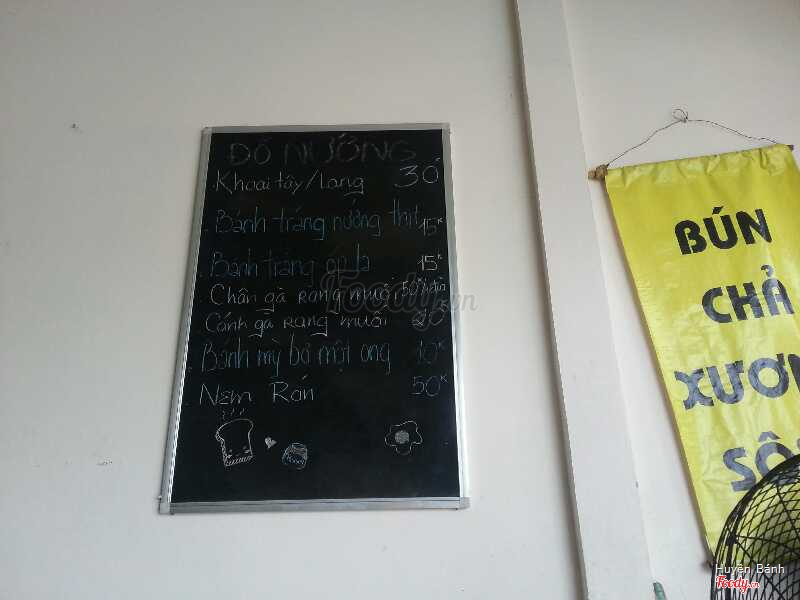 ĐỒ NƯỚNG
Khoai tây/Lang 30
Bánh tráng nướng thịt 15K
Bánh tráng ốp la 15K
Chân gà rang muối
Cánh gà rang muối
Bánh mỳ bơ mật ong 10K
Nem Rán 50K
Honey
Foody.vn
BÚN
CHẢ
XƯƠN
SÔ
Huyền Bánh
Foody.vn